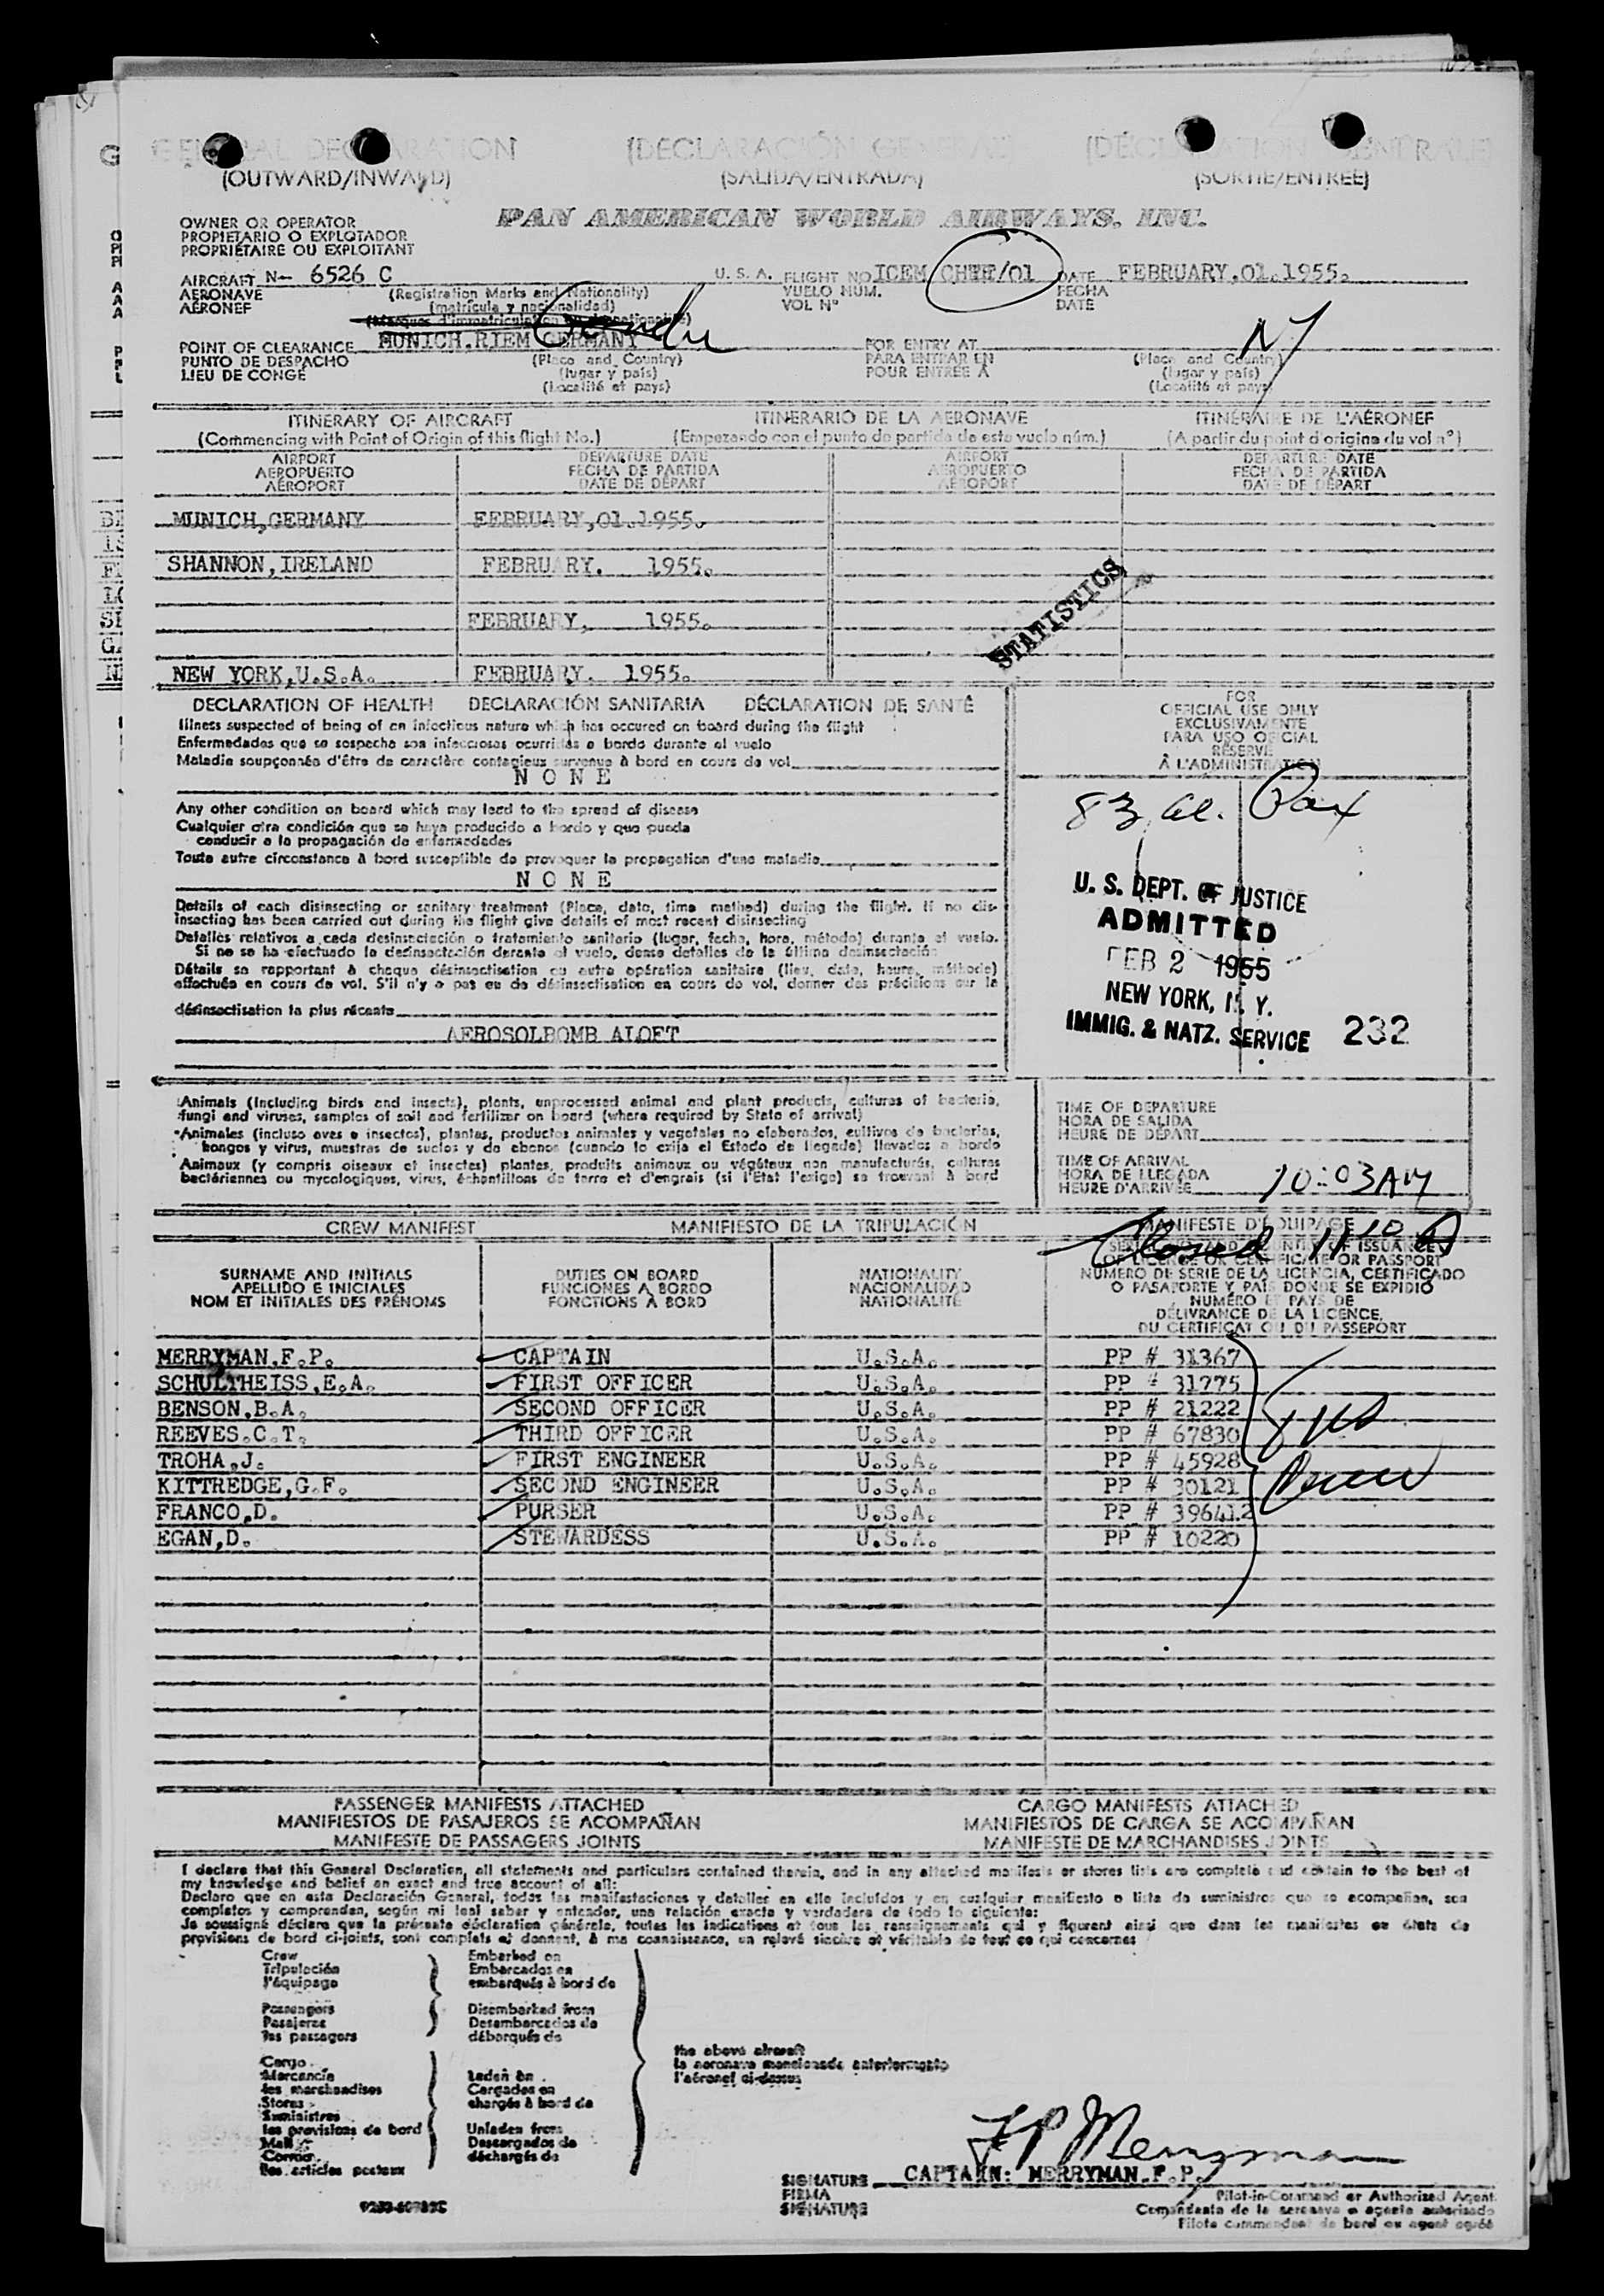 GENERAL DECLARATION (DECLARACIÓN GENERAL) (DÉCLARATION GÉNÉRALE)
(OUTWARD/INWARD) (SALIDA/ENTRADA) (SORTIE/ENTRÉE)
OWNER OR OPERATOR PAN AMERICAN WORLD AIRWAYS, INC.
PROPIETARIO O EXPLOTADOR
PROPRIÉTAIRE OU EXPLOITANT
AIRCRAFT N- 6526 C U. S. A. FLIGHT NO ICEM CHTE/01 DATE FEBRUARY,01.1955.
AERONAVE (Registration Marks and Nationality) VUELO NUM. FECHA
AÉRONEF (matrícula y nacionalidad) VOL Nº DATE
POINT OF CLEARANCE MUNICH.RIEM GERMANY FOR ENTRY AT NY
PUNTO DE DESPACHO (Place and Country) PARA ENTRAR EN (Place and Country)
LIEU DE CONGÉ (lugar y país) POUR ENTRÉE A (lugar y país)
(Localité et pays) (Localité et pays)
ITINERARY OF AIRCRAFT ITINERARIO DE LA AERONAVE ITINÉRAIRE DE L'AÉRONEF
(Commencing with Point of Origin of this flight No.) (Empezando con el punto de partida de este vuelo núm.) (A partir du point d'origine du vol nº)
AIRPORT DEPARTURE DATE AIRPORT DEPARTURE DATE
AEROPUERTO FECHA DE PARTIDA AEROPUERTO FECHA DE PARTIDA
AÉROPORT DATE DE DÉPART AÉROPORT DATE DE DÉPART
MUNICH,GERMANY FEBRUARY,01.1955.
SHANNON,IRELAND FEBRUARY. 1955.
STATISTICS
FEBRUARY, 1955.
NEW YORK,U.S.A. FEBRUARY. 1955.
DECLARATION OF HEALTH DECLARACIÓN SANITARIA DÉCLARATION DE SANTÉ
Illness suspected of being of an infectious nature which has occured on board during the flight
Enfermedades que se sospecha son infecciosas ocurridas a bordo durante el vuelo
Maladie soupçonnée d'être de caractère contagieux survenue à bord en cours de vol
N O N E
Any other condition on board which may lead to the spread of disease
Cualquier otra condición que se haya producido a bordo y que pueda
conducir a la propagación de enfermedades
Toute autre circonstance à bord susceptible de provoquer la propagation d'une maladie
N O N E
Details of each disinsecting or sanitary treatment (Place, date, time method) during the flight. If no dis-
insecting has been carried out during the flight give details of most recent disinsecting
Detalles relativos a cada desinsectación o tratamiento sanitario (lugar, fecha, hora, método) durante el vuelo.
Si no se ha efectuado la desinsectación durante el vuelo, dense detalles de la última desinsectación
Détails se rapportant à chaque désinsectisation ou autre opération sanitaire (lieu, date, heure, méthode)
effectués en cours de vol. S'il n'y a pas eu de désinsectisation en cours de vol, donner des précisions sur la
désinsectisation la plus récente
AEROSOLBOMB ALOFT
FOR
OFFICIAL USE ONLY
EXCLUSIVAMENTE
PARA USO OFICIAL
RÉSERVÉ
À L'ADMINISTRATION
83 al. Pax
U. S. DEPT. OF JUSTICE
ADMITTED
FEB 2 1955
NEW YORK, N. Y.
IMMIG. & NATZ. SERVICE 232
Animals (including birds and insects), plants, unprocessed animal and plant products, cultures of bacteria,
fungi and viruses, samples of soil and fertilizer on board (where required by State of arrival)
Animales (incluso aves e insectos), plantas, productos animales y vegetales no elaborados, cultivos de bacterias,
hongos y virus, muestras de suelos y de abonos (cuando lo exija el Estado de llegada) llevados a bordo
Animaux (y compris oiseaux et insectes) plantes, produits animaux ou végétaux non manufacturés, cultures
bactériennes ou mycologiques, virus, échantillons de terre et d'engrais (si l'État l'exige) se trouvant à bord
TIME OF DEPARTURE
HORA DE SALIDA
HEURE DE DÉPART
TIME OF ARRIVAL
HORA DE LLEGADA
HEURE D'ARRIVÉE 10:03AM
CREW MANIFEST MANIFIESTO DE LA TRIPULACIÓN MANIFESTE D'ÉQUIPAGE
Closed 11 10 A
SURNAME AND INITIALS DUTIES ON BOARD NATIONALITY
APELLIDO E INICIALES FUNCIONES A BORDO NACIONALIDAD
NOM ET INITIALES DES PRÉNOMS FONCTIONS À BORD NATIONALITÉ
OF LICENCE OR CERTIFICATE OR PASSPORT
NÚMERO DE SERIE DE LA LICENCIA, CERTIFICADO
O PASAPORTE Y PAÍS DONDE SE EXPIDIÓ
NUMÉRO ET PAYS DE
DÉLIVRANCE DE LA LICENCE,
DU CERTIFICAT OU DU PASSEPORT
MERRYMAN,F.P. CAPTAIN U.S.A. PP # 31367
SCHULTHEISS,E.A. FIRST OFFICER U.S.A. PP # 31775
BENSON,B.A. SECOND OFFICER U.S.A. PP # 21222
REEVES.C.T. THIRD OFFICER U.S.A. PP # 67830
TROHA,J. FIRST ENGINEER U.S.A. PP # 45928
KITTREDGE,G.F. SECOND ENGINEER U.S.A. PP # 30121
FRANCO,D. PURSER U.S.A. PP # 396412
EGAN,D. STEWARDESS U.S.A. PP # 10220
PASSENGER MANIFESTS ATTACHED CARGO MANIFESTS ATTACHED
MANIFIESTOS DE PASAJEROS SE ACOMPAÑAN MANIFIESTOS DE CARGA SE ACOMPAÑAN
MANIFESTE DE PASSAGERS JOINTS MANIFESTE DE MARCHANDISES JOINTS
I declare that this General Declaration, all statements and particulars contained therein, and in any attached manifests or stores lists are complete and contain to the best of
my knowledge and belief an exact and true account of all:
Declaro que en esta Declaración General, todas las manifestaciones y detalles en ella incluídos y en cualquier manifiesto o lista de suministros que se acompañan, son
completos y comprenden, según mi leal saber y entender, una relación exacta y verdadera de todo lo siguiente:
Je soussigné déclare que la présente déclaration générale, toutes les indications et tous les renseignements qui y figurent ainsi que dans les manifestes ou états de
provisions de bord ci-joints, sont complets et donnent, à ma connaissance, un relevé sincère et véritable de tout ce qui concerne:
Crew Embarked on
Tripulación Embarcados en
l'équipage embarqués à bord de
Passengers Disembarked from
Pasajeros Desembarcados de
les passagers débarqués de
the above aircraft
la aeronave mencionada anteriormente
l'aéronef ci-dessus
Cargo
Mercancía Laden on
les marchandises Cargados en
Stores chargés à bord de
Suministros
les provisions de bord Unladen from
Mail Descargados de
Correo déchargés de
les articles postaux
F P Merryman
SIGNATURE CAPTAIN: MERRYMAN.F.P.
FIRMA
SIGNATURE
Pilot-in-Command or Authorized Agent
Comandante de la aeronave o agente autorizado
Pilote commandant de bord ou agent agréé